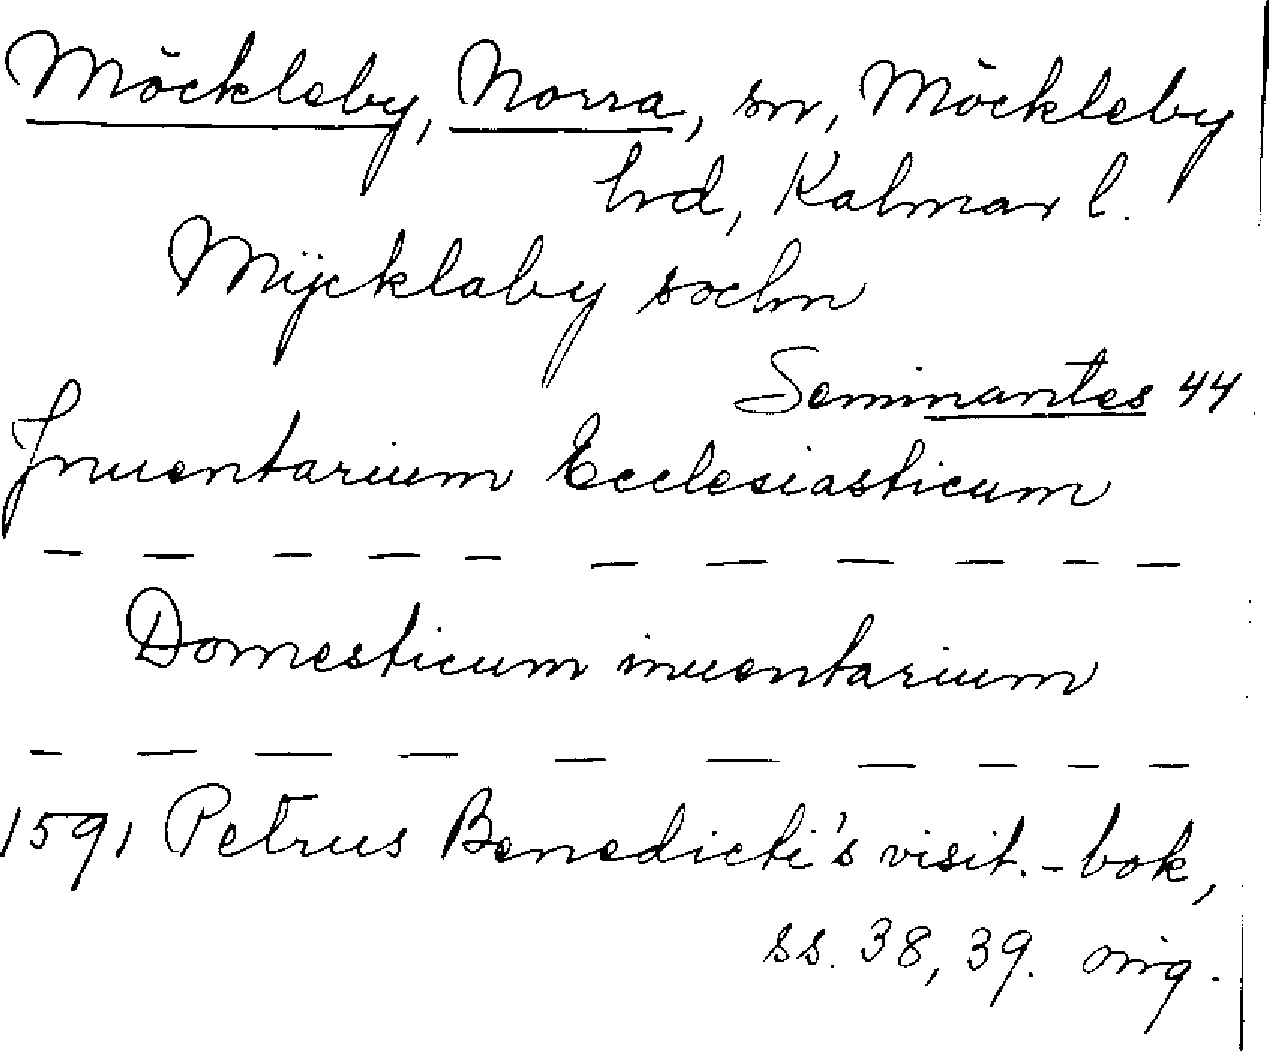 Möckleby, Norra, sn, Möckleby
hrd, Kalmar l.
Mÿcklaby sochn
Seminantes 44
Inuentarium Ecclesiasticum
— — — — — — — — — — —
Domesticum inuentarium
— — — — — — — — — —
1591 Petrus Benedicti's visit.-bok,
ss. 38, 39. orig.